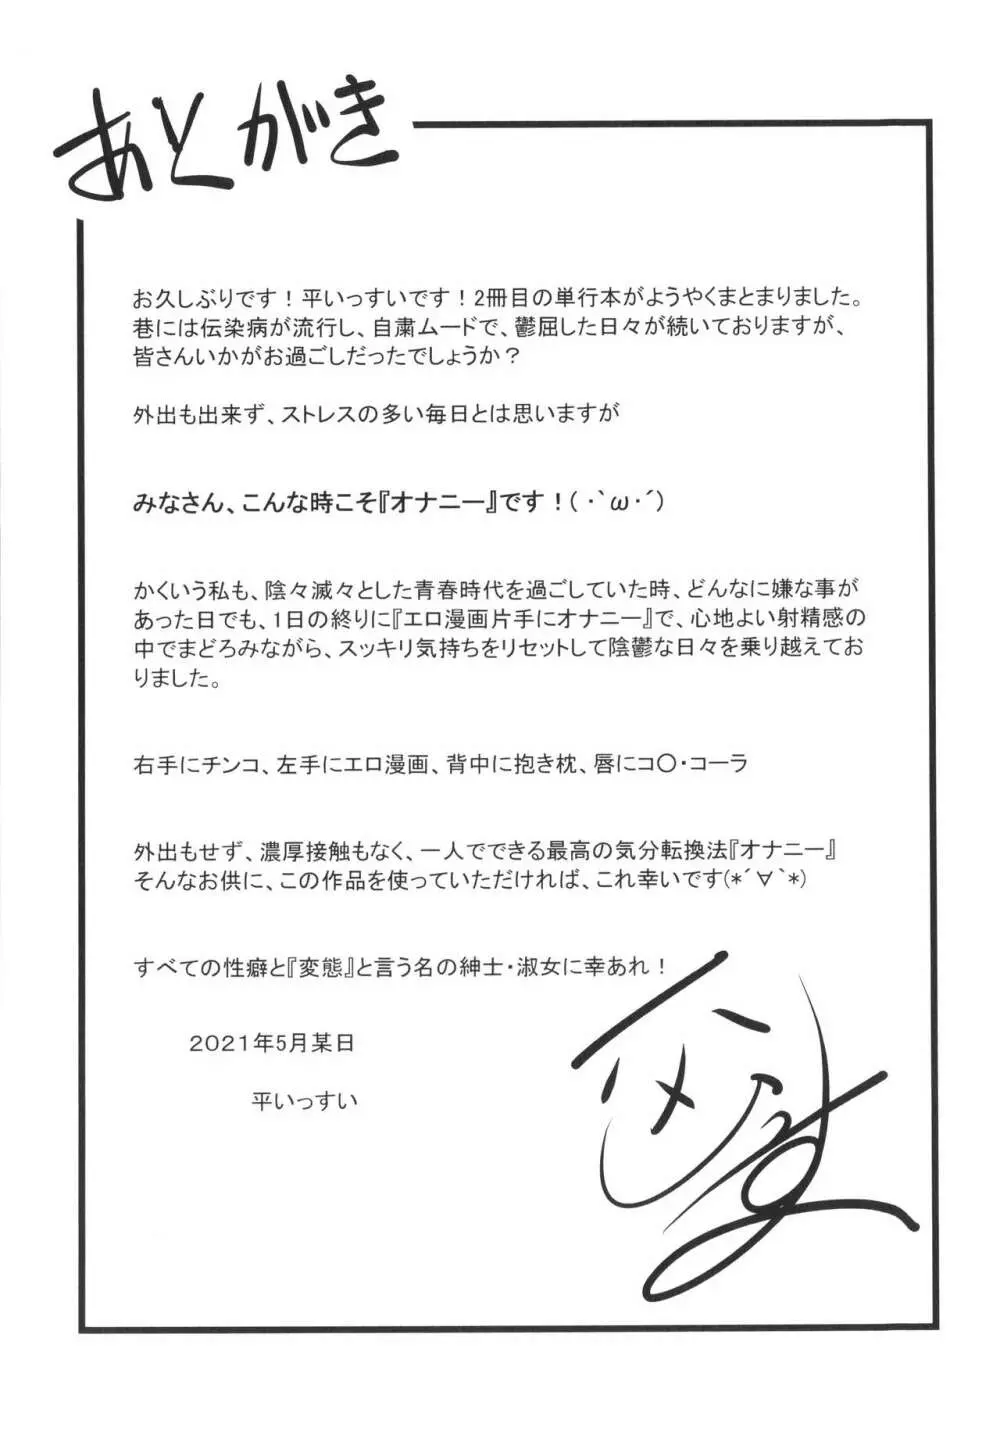 あとがき
お久しぶりです！平いっすいです！2冊目の単行本がようやくまとまりました。
巷には伝染病が流行し、自粛ムードで、鬱屈した日々が続いておりますが、
皆さんいかがお過ごしだったでしょうか？
外出も出来ず、ストレスの多い毎日とは思いますが
みなさん、こんな時こそ『オナニー』です！( ･｀ω･´)
かくいう私も、陰々滅々とした青春時代を過ごしていた時、どんなに嫌な事が
あった日でも、1日の終りに『エロ漫画片手にオナニー』で、心地よい射精感の
中でまどろみながら、スッキリ気持ちをリセットして陰鬱な日々を乗り越えてお
りました。
右手にチンコ、左手にエロ漫画、背中に抱き枕、唇にコ〇・コーラ
外出もせず、濃厚接触もなく、一人でできる最高の気分転換法『オナニー』
そんなお供に、この作品を使っていただければ、これ幸いです(*´∀｀*)
すべての性癖と『変態』と言う名の紳士・淑女に幸あれ！
2021年5月某日
平いっすい